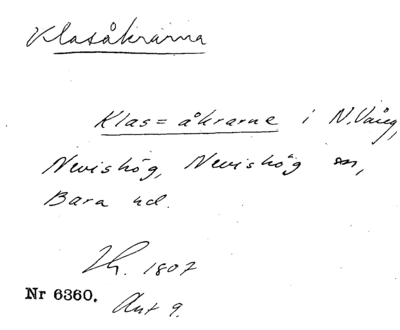 Klasåkrarna
Klas=åkrarne i N.Vång,
Nevishög, Nevishög sn,
Bara hd.
Lh. 1807
Nr 6360. Akt 9.